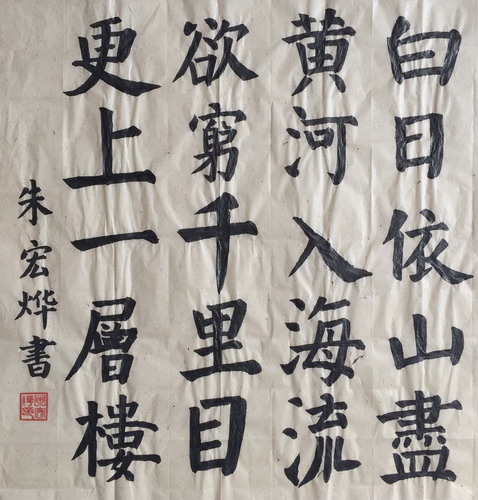 白日依山盡
黄河入海流
欲窮千里目
更上一層樓
朱宏烨書